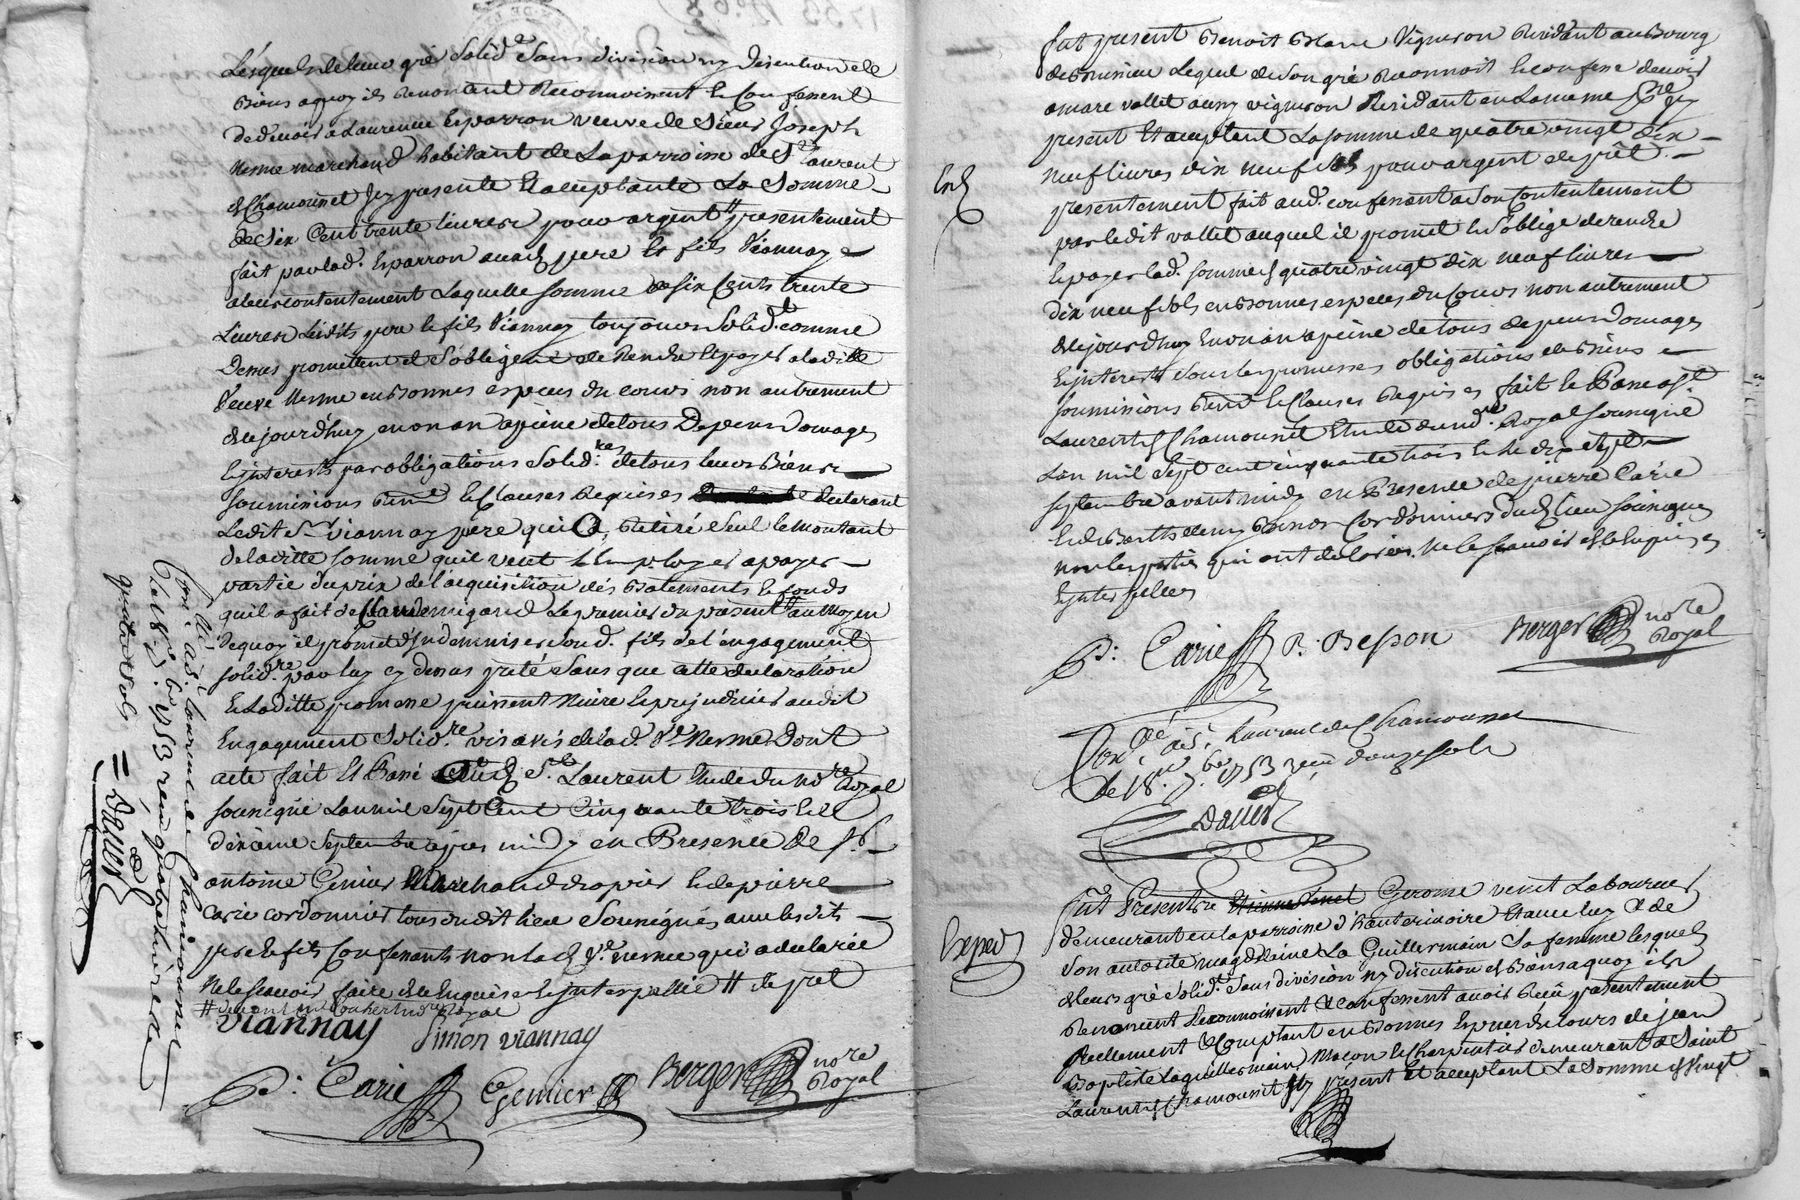 Lesquels de leur gré solid.e sans division ny discution de
biens a quoy ils renoncent reconnoissent et confessent
de devoir a Laurence Esparron veuve de Sieur Joseph
Nesme marchand habitant de la parroisse de St Laurent
de Chamousset icy presente et acceptante la somme
de six cent trente livres pour argent presentement
fait par lad. Esparron auxd. pere et fils Viannay
a leur contentement laquelle somme de six cents trente
livres lesdits pere et fils Viannay toujours solid.t comme
dessus promettent et s'obligent de rendre et payer a laditte
veuve Nesme en bonnes especes du cours non autrement
de ce jourd'huy en on an a peine de tous depens domages
et interests par obligations solid.res de tous leurs biens
soumissions renon et clauses requises declarant
ledit Sr Viannay pere qui a retiré seul le montant
de laditte somme qu'il veut employer a payer
partie du prix de l'acquisition des batiments et fonds
qu'il a fait de Claude migand le premier du present au moyen
de quoy il promet d'indemniser sond. fils de l'engagement
solid.re par luy cy dessus preté sans que cette declaration
et laditte promesse puissent nuire et prejudicier audit
engagement solid.re vis a vis de lad. Ve Nesme dont
acte fait et passé audit St Laurent etude du no.re Royal
soussigné l'an mil sept cent cinquante trois et le
dixieme septembre apres midy en presence de Sr
antoine Genier marchand drapier et de pierre
Carie cordonnier tous dudit lieu soussignés avec lesdits
pere et fils confessants non lad. Ve nesme qui a declarée
ne le sçavoir faire de ce enquise et interpellée # de pret
#
Viannay Simon viannay
P: Carie Genier Berger no.re Royal
Con.lé a St laurent de Chamousset
le 18e 7bre 1753 reçu quatre livres
quatre sols = Dauer
fut present Benoit Blanc vigneron residant au bourg
de Brussieu lequel de son gré reconnoit et confesse devoir
a marc vallet aussy vigneron residant en la meme p.sse icy
present et acceptant la somme de quatre vingt dix
neuf livres dix neuf sols pour argent de prêt
presentement fait aud. confessant a son contentement
par ledit vallet auquel il promet et s'oblige de rendre
et payer lad. somme de quatre vingt dix neuf livres
dix neuf sols en bonnes especes du cours non autrement
de ce jourd'huy en on an a peine de tous depens domages
et interests sous les promesses obligations de biens
soumissions renon et clauses requises fait et passé a St
Laurent de Chamousset etude du no.re Royal soussigné
l'an mil sept cent cinquante trois et le dix sept
septembre avant midy en presence de pierre Carie
et de Barthelemy Besson cordonniers dudit lieu soussignes
non les parties qui ont declarées ne le scavoir de ce enquises
et interpellees
P: Carie B. Besson Berger no.re Royal
Con.lé a St Laurent de Chamousset
le 18e 7bre 1753 reçu douze sols
Dauer
fut Present Gerome venet Laboureur
demeurant en la parroisse d'hauterivoire et avec luy et de
son autorité magdelaine La Guillermain sa femme lesquels
de leurs gré solid. sans division ny discution de biens a quoy ils
renoncent reconnoissent et confessent avoir reçu presentement
reellement et comptant en bonnes especes du cours de jean
Baptiste Laguillermain, Maçon et charpentier demeurant a Saint
Laurent de Chamousset icy present et acceptant la somme de vingt